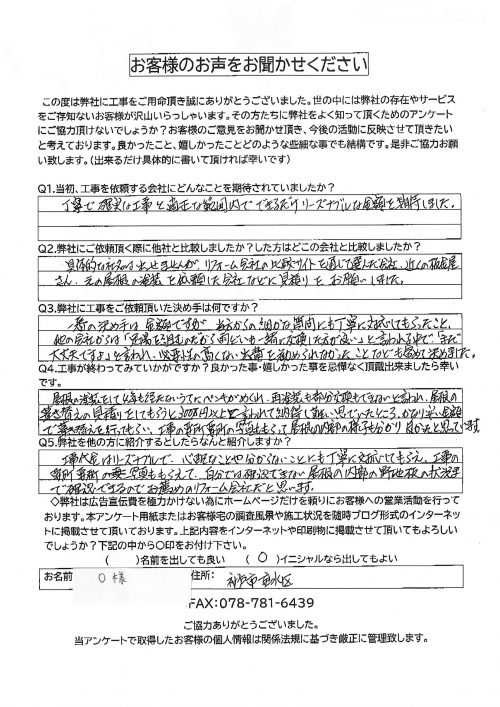 お客様のお声をお聞かせください
この度は弊社に工事をご用命頂き誠にありがとうございました。世の中には弊社の存在やサービス
をご存知ないお客様が沢山いらっしゃいます。その方たちに弊社をよく知って頂くためのアンケート
にご協力頂けないでしょうか？お客様のご意見をお聞かせ頂き、今後の活動に反映させて頂きたい
と考えております。良かったこと、嬉しかったことどのような些細な事でも結構です。是非ご協力お願
い致します。（出来るだけ具体的に書いて頂ければ幸いです）
Q1.当初、工事を依頼する会社にどんなことを期待されていましたか？
丁寧で確実な工事と適正な範囲内でできるだけリーズナブルな金額を期待しました。
Q2.弊社にご依頼頂く際に他社と比較しましたか？した方はどこの会社と比較しましたか？
具体的な社名は出せませんが、リフォーム会社の比較サイトを通じて選んだ会社、近くの板金屋
さん、元の屋根の塗装を依頼した会社などに見積りをお願いしました。
Q3.弊社に工事をご依頼頂いた決め手は何ですか？
一番の決め手は金額ですが、こちらの細かな質問にも丁寧に対応してもらったこと、
他の会社からは「足場を組むのだから雨どいも一緒に交換した方が良い」と言われる中で「まだ
大丈夫ですよ」と言われ、必要性の高くない出費を勧められなかったことなども含めて決めました。
Q4.工事が終わってみていかがですか？良かった事・嬉しかった事を忌憚なく頂戴出来ましたら幸
いです。
屋根の塗装をして4年経たないうちにペンキがめくれ、再塗装も部分交換もできないと言われ、屋根の
葺き替えの見積りをしてもらうと200万円以上と言われて納得し難い思いでいたところ、かなり安い金額
で葺き替えを行ってもらい、工事の要所要所の写真ももらえて屋根の内部の様子も分かり良かったと思っています
Q5.弊社を他の方に紹介するとしたらなんと紹介しますか？
工事代金はリーズナブルで、心配なことや分からないことにも丁寧に対応してもらえ、工事の
要所要所の写真ももらえて、自分では確認できない屋根の内部の野地板の状況ま
で確認できるのでお薦めのリフォーム会社だと思います。
◇弊社は広告宣伝費を極力かけない為にホームページだけを頼りにお客様への営業活動を行って
おります。本アンケート用紙またはお客様宅の調査風景や施工状況を随時ブログ形式のインターネッ
トに掲載させて頂いております。上記内容をインターネットや印刷物に掲載させて頂いてもよろしい
でしょうか？下記の中から〇印をお付け下さい。
（　　）名前を出しても良い　（ O ）イニシャルなら出してもよい
お名前　O 様　住所：　神戸市垂水区
FAX：078-781-6439
ご協力ありがとうございました。
当アンケートで取得したお客様の個人情報は関係法規に基づき厳正に管理致します。